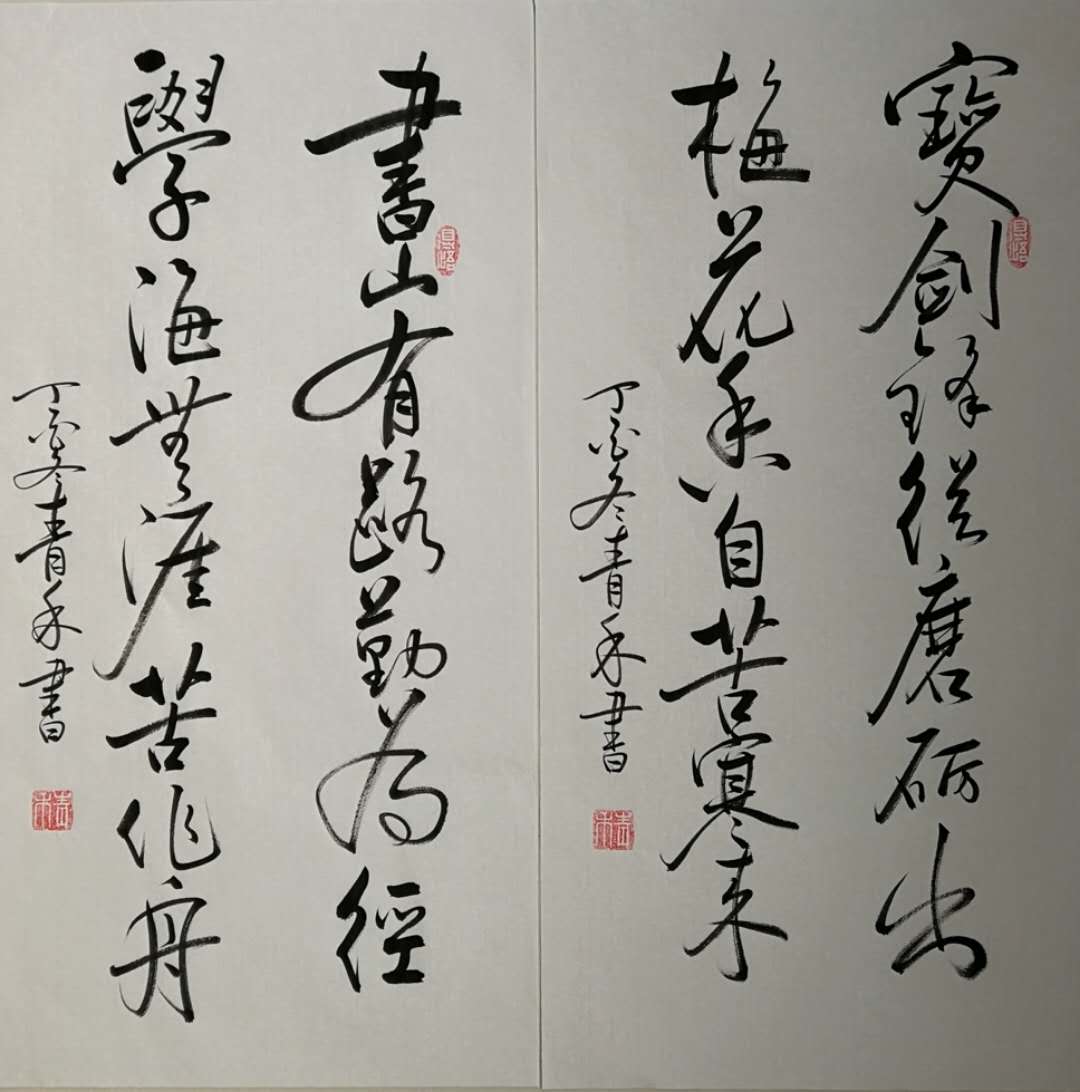 寶劍鋒從磨礪出
梅花香自苦寒來
丁酉冬青禾書
書山有路勤為徑
學海無涯苦作舟
丁酉冬青禾書